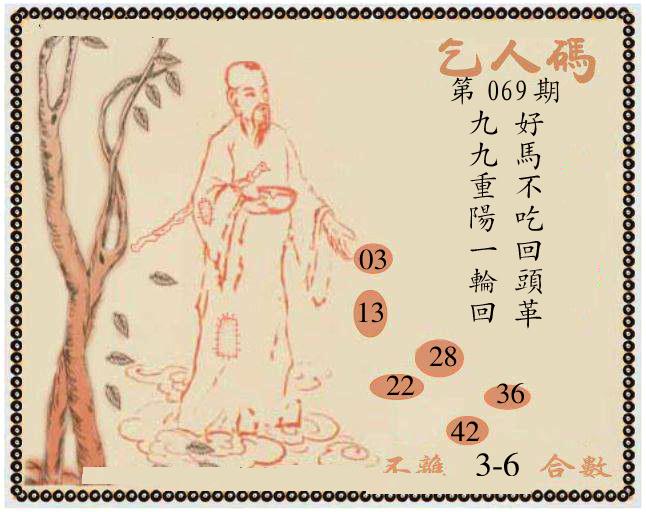 乞人碼
第 069 期
好馬不吃回頭革
九九重陽一輪回
03
13
28
22
36
42
不離 3-6 合數